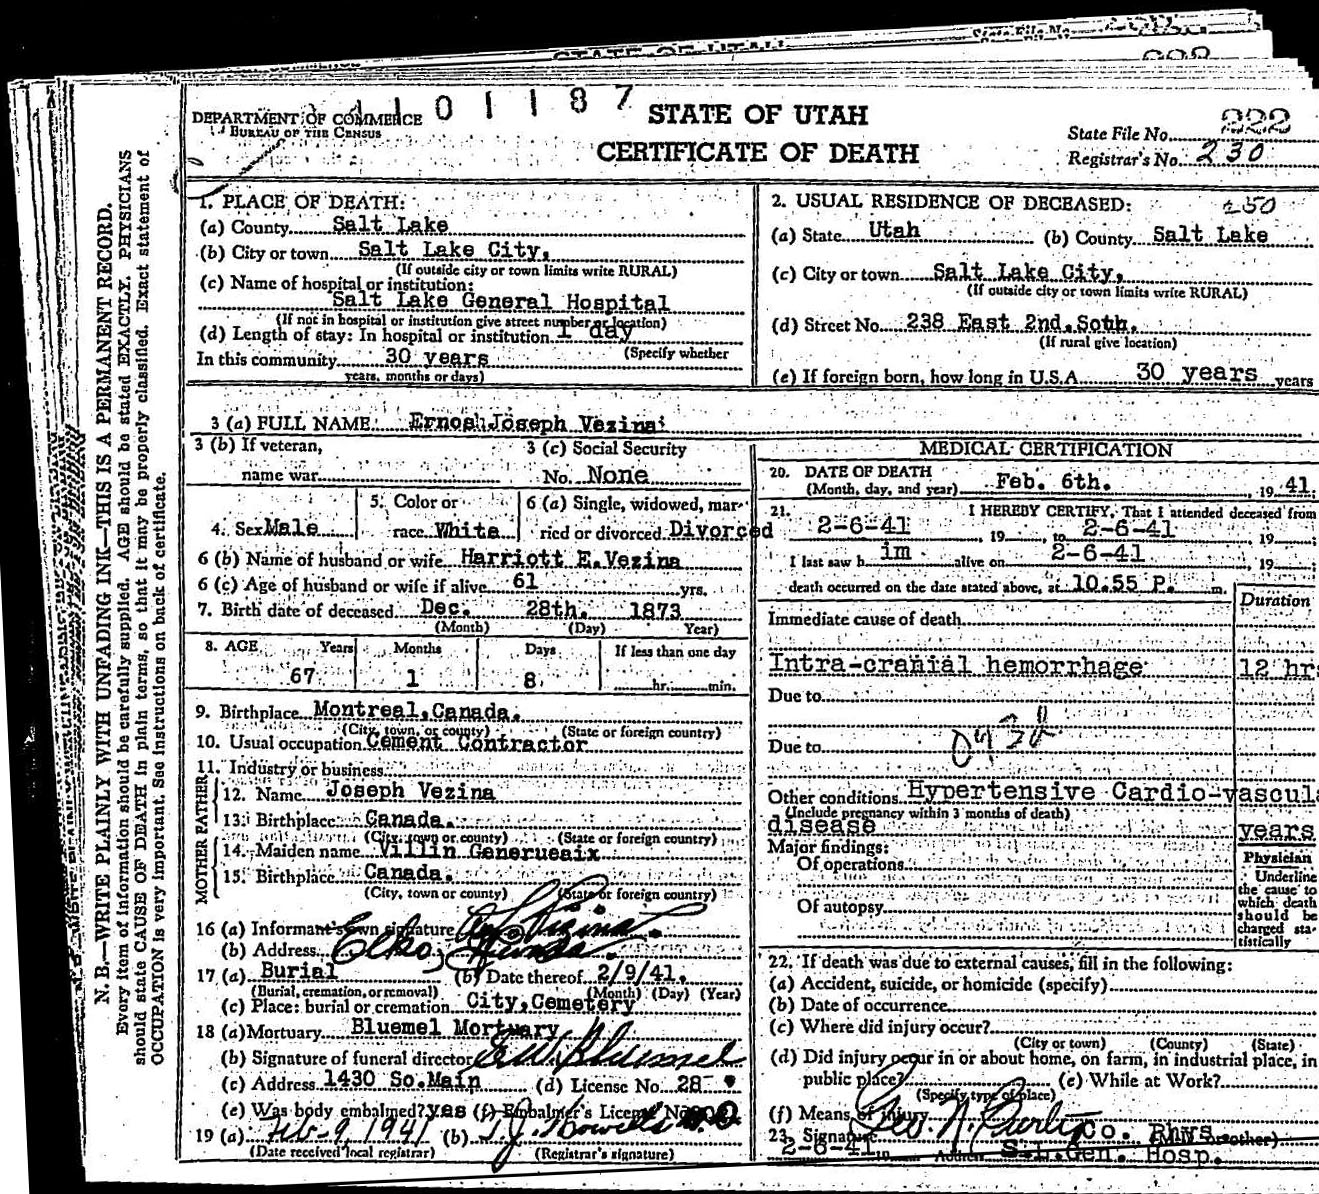 DEPARTMENT OF COMMERCE
BUREAU OF THE CENSUS
1 0 1 1 8 7
STATE OF UTAH
CERTIFICATE OF DEATH
State File No. 222
Registrar's No. 230
N. B.—WRITE PLAINLY WITH UNFADING INK—THIS IS A PERMANENT RECORD.
Every item of information should be carefully supplied. AGE should be stated EXACTLY. PHYSICIANS
should state CAUSE OF DEATH in plain terms, so that it may be properly classified. Exact statement of
OCCUPATION is very important. See instructions on back of certificate.
1. PLACE OF DEATH:
(a) County Salt Lake
(b) City or town Salt Lake City,
(If outside city or town limits write RURAL)
(c) Name of hospital or institution:
Salt Lake General Hospital
(If not in hospital or institution give street number or location)
(d) Length of stay: In hospital or institution 1 day
(Specify whether
In this community 30 years
years, months or days)
2. USUAL RESIDENCE OF DECEASED: 250
(a) State Utah (b) County Salt Lake
(c) City or town Salt Lake City,
(If outside city or town limits write RURAL)
(d) Street No. 238 East 2nd. Soth.
(If rural give location)
(e) If foreign born, how long in U.S.A. 30 years years
3 (a) FULL NAME: Joseph Vezina
3 (b) If veteran,
name war
3 (c) Social Security
No. None
4. Sex Male
5. Color or
race White
6 (a) Single, widowed, mar-
ried or divorced Divorced
6 (b) Name of husband or wife Harriott E. Vezina
6 (c) Age of husband or wife if alive 61 yrs.
7. Birth date of deceased Dec. 28th. 1873
(Month) (Day) Year)
8. AGE Years Months Days If less than one day
67 1 8 hr. min.
9. Birthplace Montreal, Canada.
(City, town, or county) (State or foreign country)
10. Usual occupation Cement Contractor
11. Industry or business
FATHER
12. Name Joseph Vezina
13. Birthplace Canada.
(City, town or county) (State or foreign country)
MOTHER
14. Maiden name Villin Generueaix
15. Birthplace Canada.
(City, town or county) (State or foreign country)
16 (a) Informant's own signature Vezina.
(b) Address Elko,
17 (a) Burial (b) Date thereof 2/9/41.
(Burial, cremation, or removal) (Month) (Day) (Year)
(c) Place: burial or cremation City, Cemetery
18 (a) Mortuary Bluemel Mortuary
(b) Signature of funeral director Bluemel
(c) Address 1430 So. Main (d) License No. 28
(e) Was body embalmed? yes (f) Embalmer's License No.
19 (a) Feb-9, 1941 (b)
(Date received local registrar) (Registrar's signature)
MEDICAL CERTIFICATION
20. DATE OF DEATH
(Month, day, and year) Feb. 6th. , 19 41
21. I HEREBY CERTIFY, That I attended deceased from
2-6-41 , 19 , to 2-6-41 , 19 ;
I last saw h im alive on 2-6-41 , 19 ;
death occurred on the date stated above, at 10.55 P. m.
Duration
Immediate cause of death
Intra-cranial hemorrhage 12 hrs
Due to
Due to
Other conditions Hypertensive Cardio-vascula
(Include pregnancy within 3 months of death)
disease years
Major findings:
Of operations
Of autopsy
Physician
Underline
the cause to
which death
should be
charged sta-
tistically
22. If death was due to external causes, fill in the following:
(a) Accident, suicide, or homicide (specify)
(b) Date of occurrence
(c) Where did injury occur?
(City or town) (County) (State)
(d) Did injury occur in or about home, on farm, in industrial place, in
public place? (e) While at Work?
(Specify type of place)
(f) Means of injury
23. Signature Geo. N. Co. Phys.
2-6-41 Address S.L. Gen. Hosp.